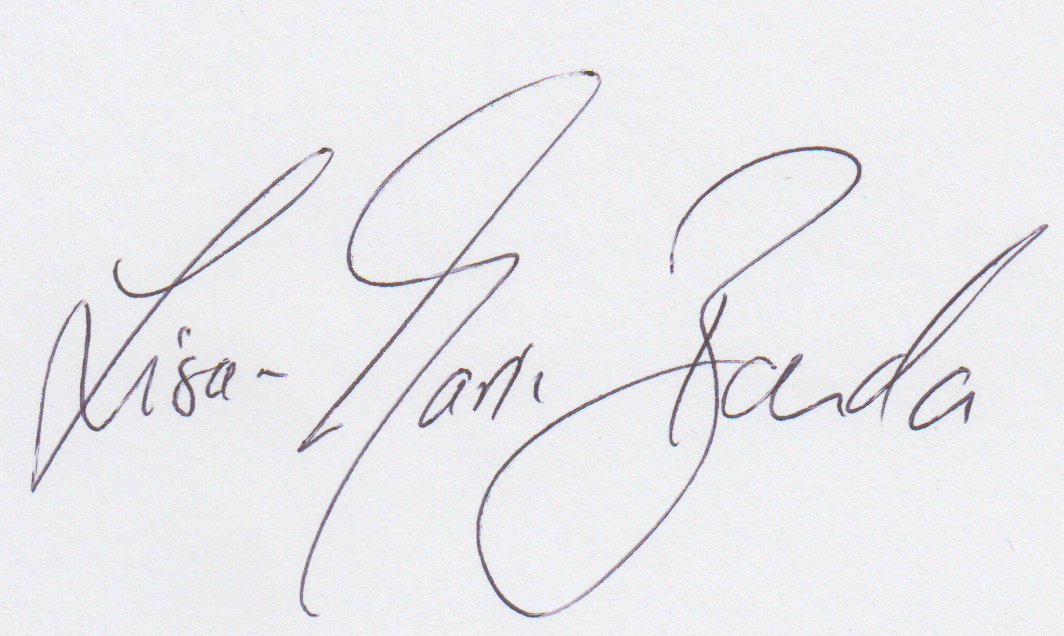 Lisa-Marie Banda